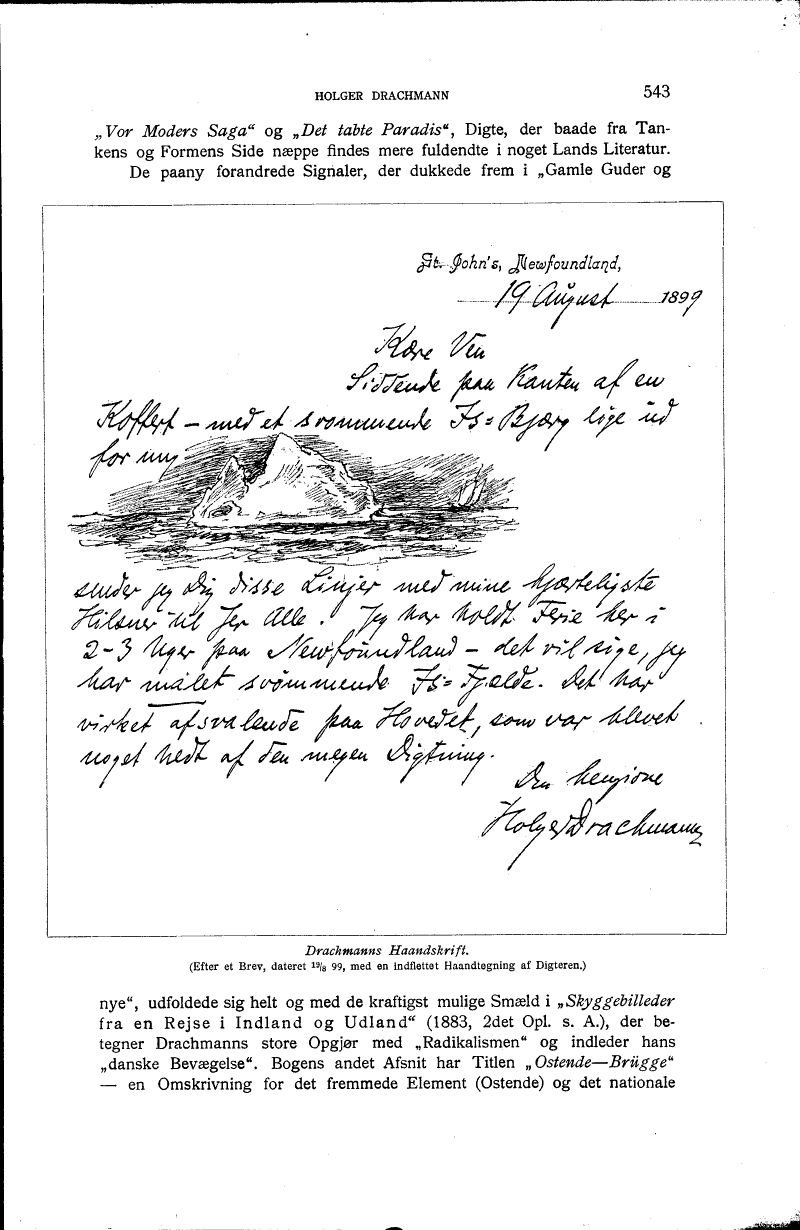 HOLGER DRACHMANN 543
„Vor Moders Saga“ og „Det tabte Paradis“, Digte, der baade fra Tan-
kens og Formens Side næppe findes mere fuldendte i noget Lands Literatur.
De paany forandrede Signaler, der dukkede frem i „Gamle Guder og
St. John's, Newfoundland,
19 August 1899
Kære Ven
Siddende paa Kanten af en
Koffert – med et svømmende Is=Bjærg lige ud
for mig
sender jeg Dig disse Linjer med mine hjærteligste
Hilsner til Jer Alle. Jeg har holdt Ferie her i
2-3 Uger paa Newfoundland – det vil sige, jeg
har målet svømmende Is=Fjælde. Det har
virket afsvalende paa Hovedet, som var blevet
noget hedt af den megen Digtning.
Din hengivne
Holger Drachmann
Drachmanns Haandskrift.
(Efter et Brev, dateret 19/8 99, med en indflettet Haandtegning af Digteren.)
nye“, udfoldede sig helt og med de kraftigst mulige Smæld i „Skyggebilleder
fra en Rejse i Indland og Udland“ (1883, 2det Opl. s. A.), der be-
tegner Drachmanns store Opgjør med „Radikalismen“ og indleder hans
„danske Bevægelse“. Bogens andet Afsnit har Titlen „Ostende—Brügge“
— en Omskrivning for det fremmede Element (Ostende) og det nationale